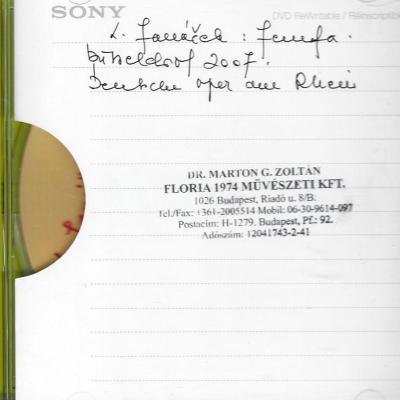 SONY
DVD ReWritable / Réinscriptible
L. Janáček : Jenufa.
Düsseldorf 2007.
Deutsche Oper am Rhein
DR. MARTON G. ZOLTÁN
FLORIA 1974 MŰVÉSZETI KFT.
1026 Budapest, Riadó u. 8/B.
Tel./Fax: +361-2005514 Mobil: 06-30-9614-097
Postacím: H-1279. Budapest, Pf.: 92.
Adószám: 12041743-2-41